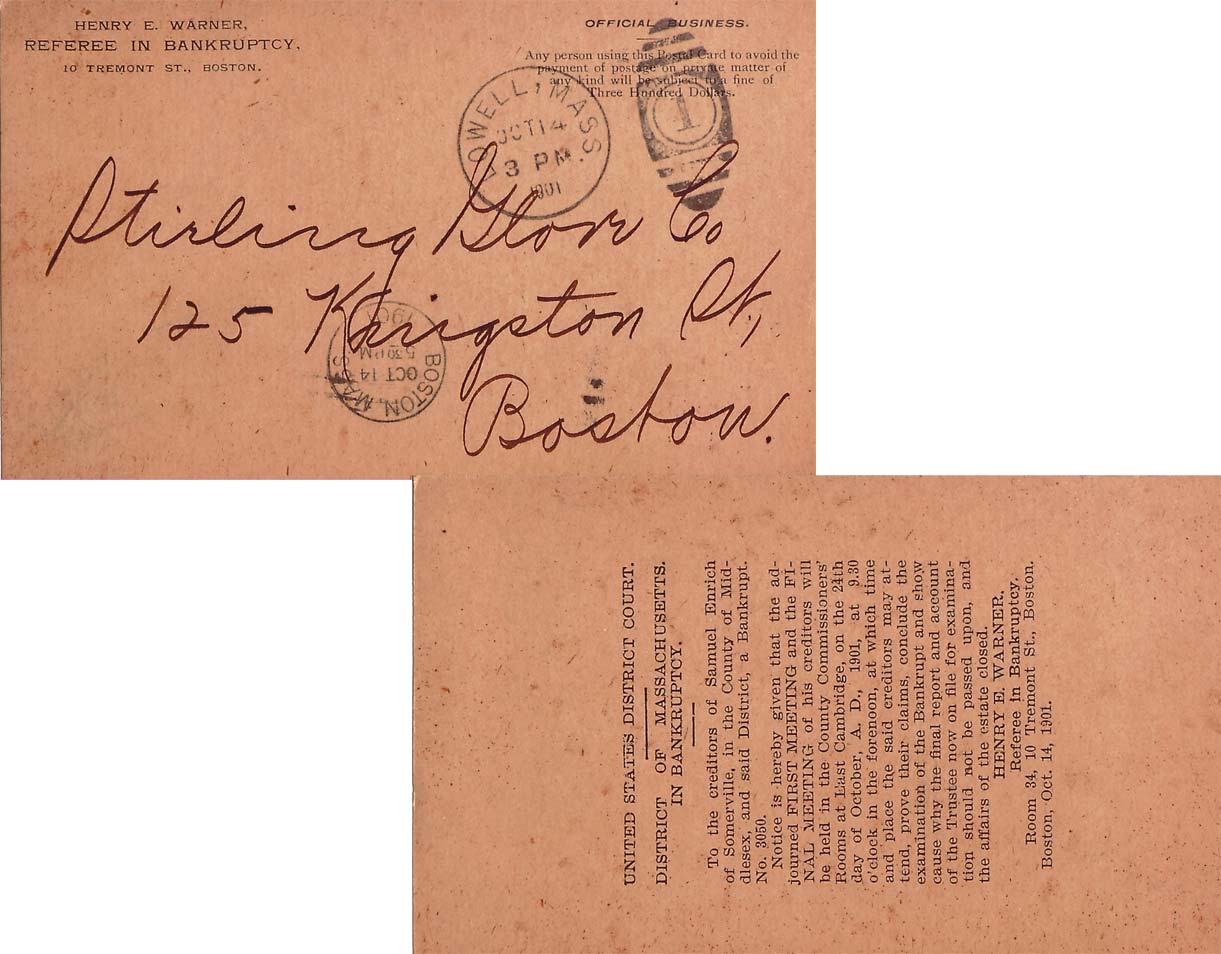 HENRY E. WARNER,
REFEREE IN BANKRUPTCY,
10 TREMONT ST., BOSTON.
OFFICIAL BUSINESS.
Any person using this Postal Card to avoid the
payment of postage on private matter of
any kind will be subject to a fine of
Three Hundred Dollars.
LOWELL, MASS.
OCT 14
3 PM.
1901
1
Stirling Glove Co
125 Kingston St,
Boston.
BOSTON, MASS
OCT 14
5 30 PM
190
UNITED STATES DISTRICT COURT.
DISTRICT OF MASSACHUSETTS.
IN BANKRUPTCY.
To the creditors of Samuel Enrich
of Somerville, in the County of Mid-
dlesex, and said District, a Bankrupt.
No. 3050.
Notice is hereby given that the ad-
journed FIRST MEETING and the FI-
NAL MEETING of his creditors will
be held in the County Commissioners'
Rooms at East Cambridge, on the 24th
day of October, A. D., 1901, at 9.30
o'clock in the forenoon, at which time
and place the said creditors may at-
tend, prove their claims, conclude the
examination of the Bankrupt and show
cause why the final report and account
of the Trustee now on file for examina-
tion should not be passed upon, and
the affairs of the estate closed.
HENRY E. WARNER,
Referee in Bankruptcy,
Room 34, 10 Tremont St., Boston.
Boston, Oct. 14, 1901.